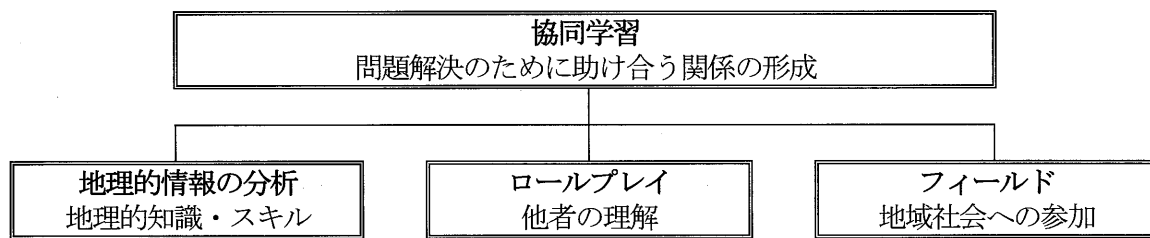 協同学習
問題解決のために助け合う関係の形成
地理的情報の分析
地理的知識・スキル
ロールプレイ
他者の理解
フィールド
地域社会への参加